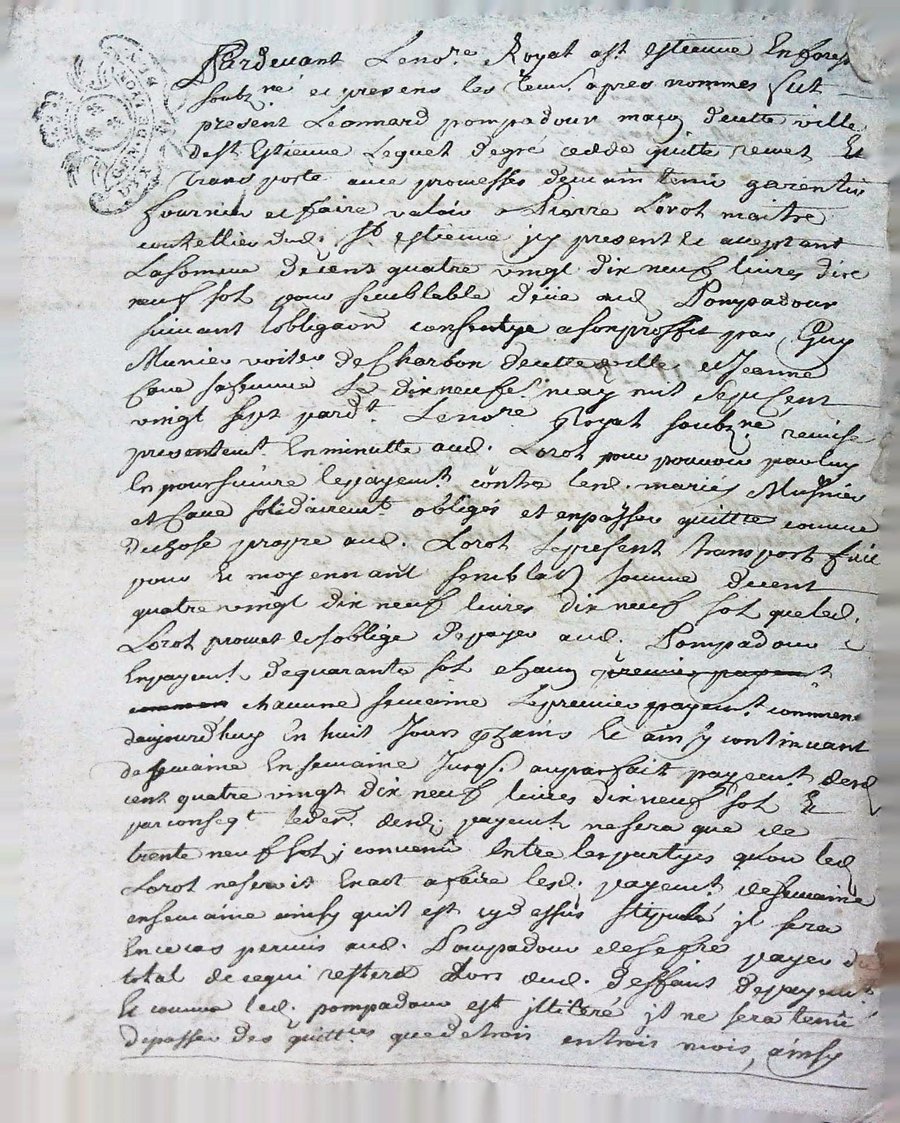 Pardevant Le no.re Royal a st. estienne En forest
soubz.né et presens les tem. apres nommes fut
present Leonnard pompadour maçon decette ville
de st. Estienne Lequel degré cedde quitte remet Et
transporte avec promesses demaintenir garentir
fournir et faire valoir a Pierre Lorot maitre
coutellier dud. St. estienne jcy present et acceptant
La somme de cent quatre vingt dix neuf livres dix
neuf sol pour semblable deüe aud. Pompadour
suivant lobligaon consentye a son proffit par Guy
Munier voitur de Charbon decette ville et Jeanne
Cave sa femme Le dix neuf may mil sept Cent
vingt sept pardt. Le no.re Royal soubz.né remise
presentemt. En minutte aud. Lorot pour pouvoir par luy
En poursuivre le payemt. contre lesd. mariés Musnier
et Cave solidairemt. obligés et en passer quitte comme
de chose propre aud. Lorot Le present transport fait
pour et moyennant semblable somme de cent
quatre vingt dix neuf livres dix neuf sol que led.
Lorot promet et soblige de payer aud. Pompadour
En payemt. de quarante sol chacun premier payemt
commen chacune semaine Le premier payemt. commen
daujourdhuy En huit Jours et ainsy continuant
de semaine En semaine Jusqs. au parfait payemt. desd
cent quatre vingt dix neuf livres dix neuf sol Et
par conseqt. le der. desd. payemt. ne sera que de
trente neuf sol; convenu Entre les partyes qu'ou led
Lorot ne seroit Exact a faire lesd. payemt. de semaine
en semaine ainsy quil est cy dessus stipulé jl sera
En ce cas permis aud. Pompadour de se fre payer du
total de ce qui restera alors dud. deffaut de payemt.
Et comme led. pompadour est jlliteré jl ne sera tenu
de passer des quittces que de trois en trois mois, ainsy